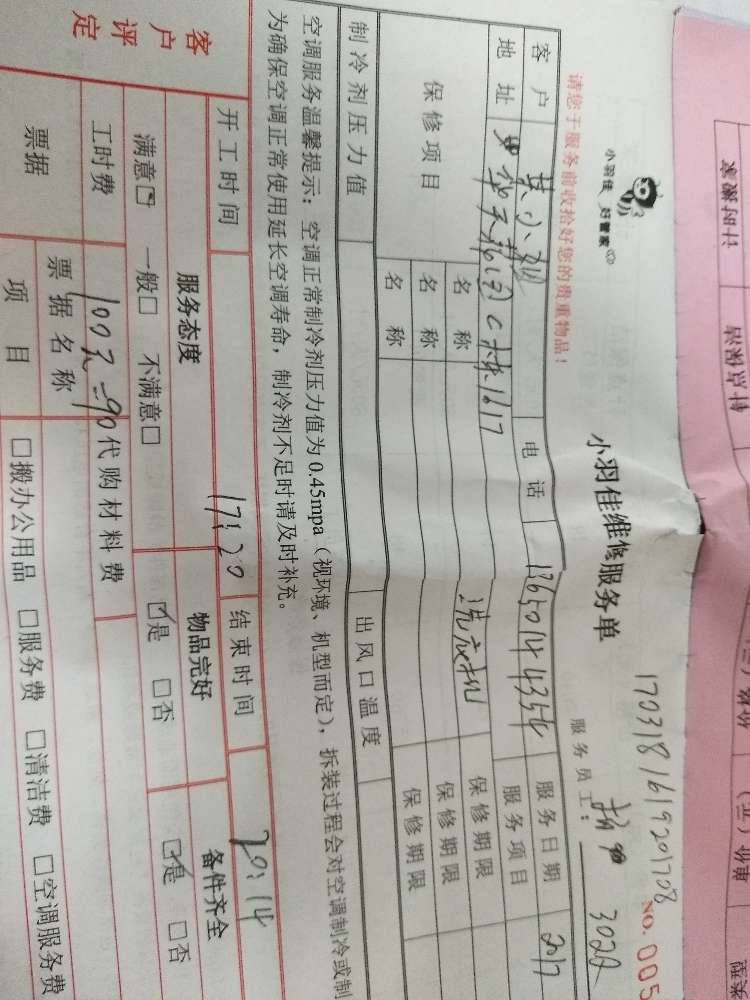 小羽佳 好管家
小羽佳维修服务单
170318161920170 8
NO. 005
请您于服务前收拾好您的贵重物品！
服务员工： 3022
客户 电话 13650144354 服务日期 2017
地址 C栋1617 服务项目
保修项目 名称 洗衣机 保修期限
名称 保修期限
名称 保修期限
制冷剂压力值 出风口温度
空调服务温馨提示：空调正常制冷剂压力值为0.45mpa（视环境、机型而定），拆装过程会对空调制冷或制
为确保空调正常使用延长空调寿命，制冷剂不足时请及时补充。
开工时间 17:20 结束时间 20:14
客户评定 服务态度 物品完好 备件齐全
满意☑ 一般□ 不满意□ ☑是 □否 ☑是 □否
工时费 100元-90 代购材料费
票据 票据名称
项目 □搬办公用品 □服务费 □清洁费 □空调服务费